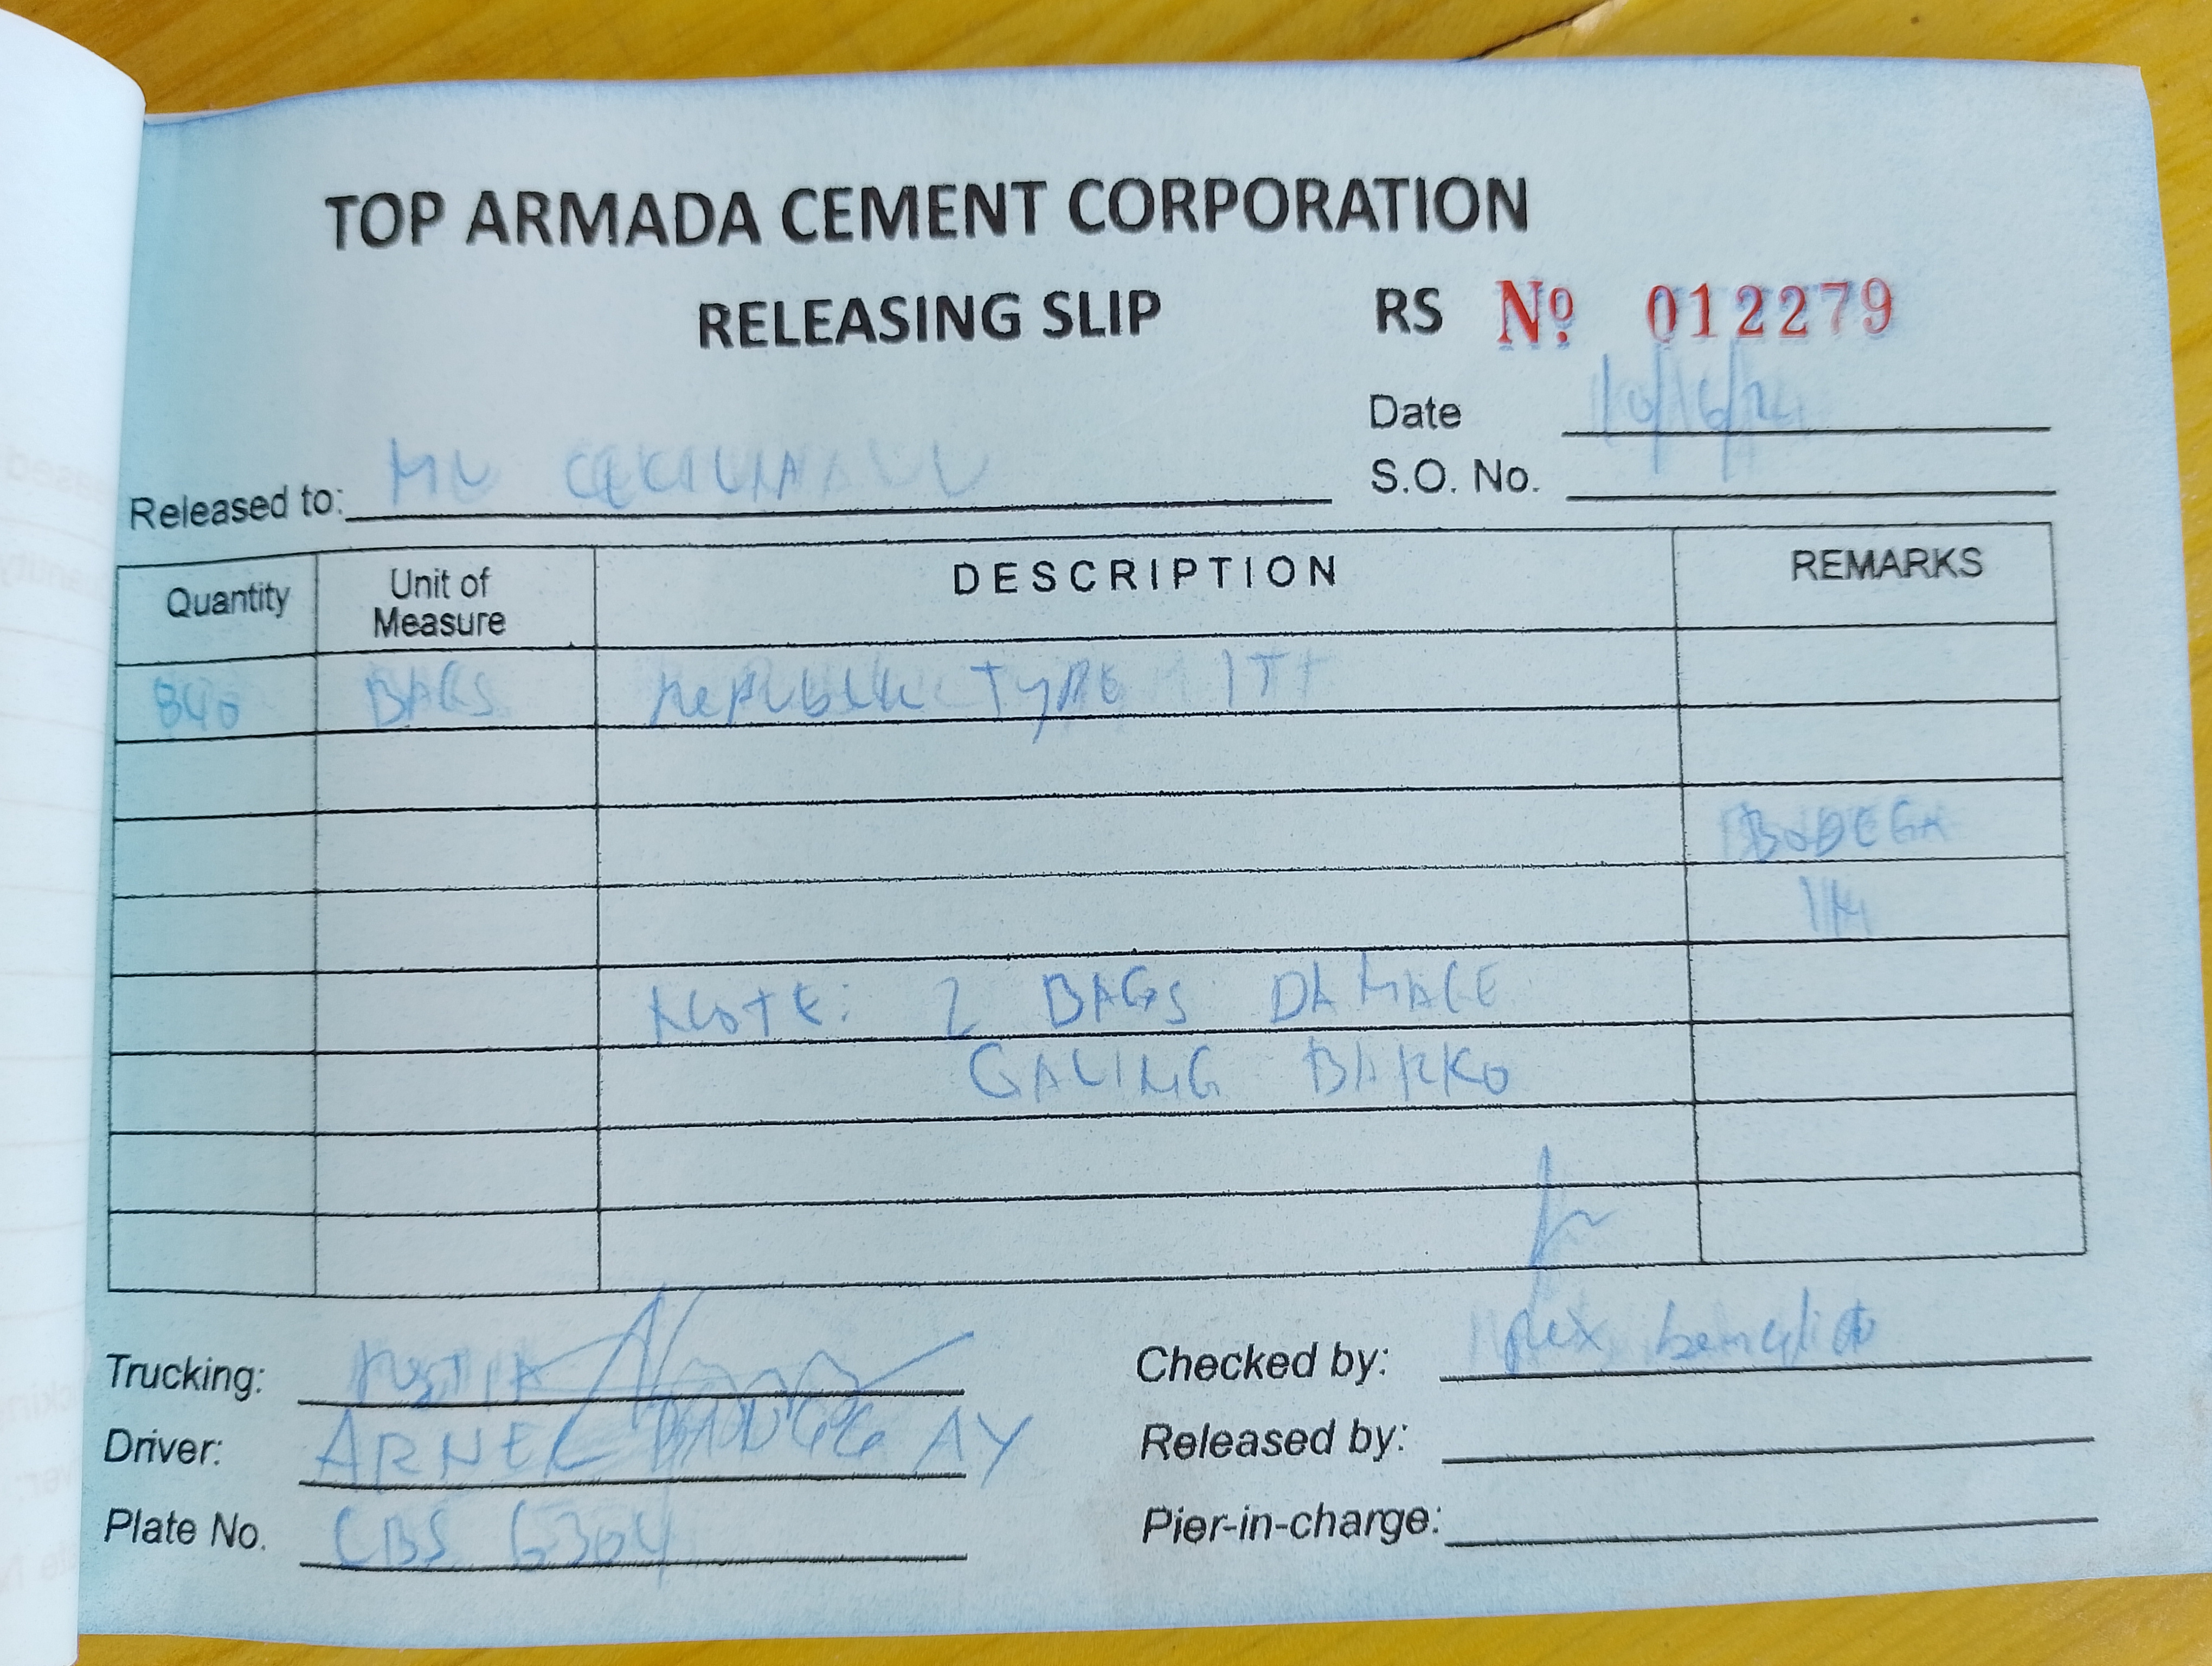 TOP ARMADA CEMENT CORPORATION
RELEASING SLIP RS Nº 012279
Date 10/16/24
Released to: MV
S.O. No.
Quantity Unit of Measure DESCRIPTION REMARKS
840 BAGS REPUBLIC TYPE 1T
BODEGA
NOTE: 2 BAGS DAMAGE
GALING BARKO
Trucking:
Checked by: benedicto
Driver: ARNEL
Released by:
Plate No. CBS 6304
Pier-in-charge: